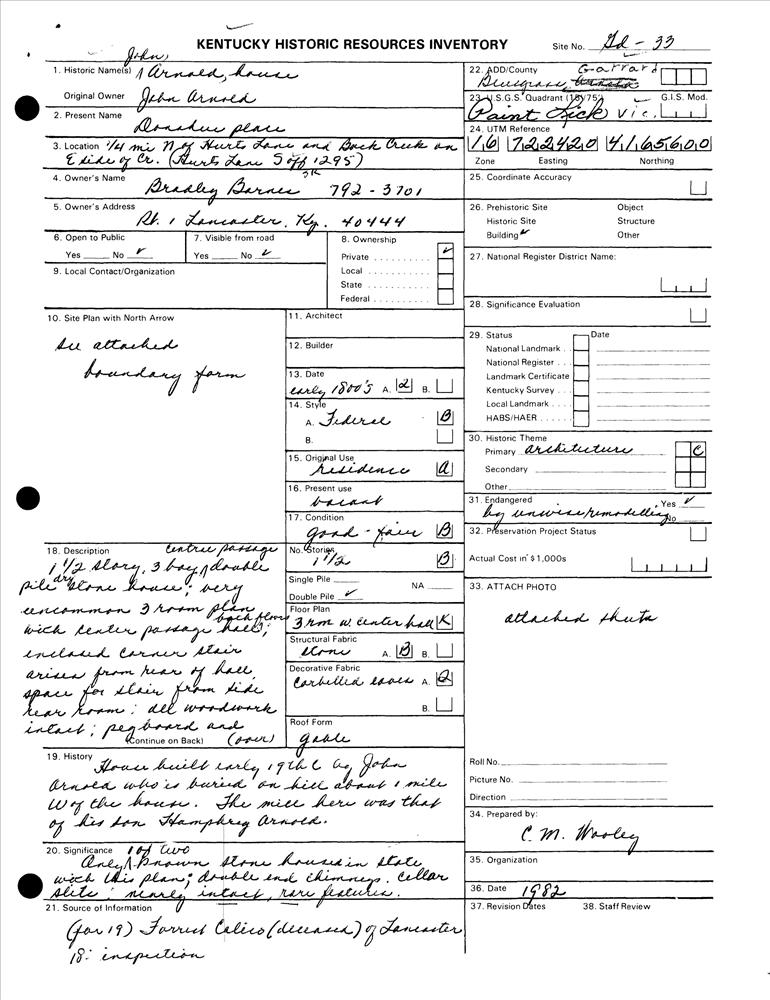 KENTUCKY HISTORIC RESOURCES INVENTORY
Site No. Gd - 33
John
1. Historic Name(s) Arnold, house
Original Owner John Arnold
2. Present Name
Donahue place
3. Location 1/4 mi N of Hurts Lane and Back Creek on
E side of Cr. (Hurts Lane S off 1295)
4. Owner's Name
Bradley Barnes Jr 792 - 3701
5. Owner's Address
Rt. 1 Lancaster, Ky. 40444
6. Open to Public
Yes No ✓
7. Visible from road
Yes No ✓
8. Ownership
Private ✓
Local
State
Federal
9. Local Contact/Organization
10. Site Plan with North Arrow
see attached
boundary form
11. Architect
12. Builder
13. Date
early 1800's A. 2 B.
14. Style
A. Federal B
B.
15. Original Use
residence A
16. Present use
vacant
17. Condition
good - fair B
No. Stories
1 1/2 B
Single Pile NA
Double Pile ✓
Floor Plan
3 rm w. center hall K
Structural Fabric
stone A. B B.
Decorative Fabric
corbelled eaves A. 2
B.
Roof Form
gable
18. Description centre passage
1 1/2 story, 3 bay, double
pile dry stone house; very
uncommon 3 room plan
with center passage hall;
enclosed corner stair
arises from rear of hall,
space for stair from side
rear room; all woodwork
intact; pegboard and
(Continue on Back) (over)
19. History
House built early 19th C by John
Arnold who is buried on hill about 1 mile
W of the house. The mill here was that
of his son Humphrey Arnold.
20. Significance 1 of two
Only known stone houses in state
with this plan; double end chimneys. Cellar
slits; nearly intact, rare features.
21. Source of Information
(for 19) Forrest Calico (deceased) of Lancaster
18: inspection
22. ADD/County Garrard
Bluegrass
23. U.S.G.S. Quadrant (15/7.5) G.I.S. Mod.
Paint Lick Vic.
24. UTM Reference
16 722420 4165600
Zone Easting Northing
25. Coordinate Accuracy
26. Prehistoric Site Object
Historic Site Structure
Building ✓ Other
27. National Register District Name:
28. Significance Evaluation
29. Status Date
National Landmark
National Register
Landmark Certificate
Kentucky Survey
Local Landmark
HABS/HAER
30. Historic Theme
Primary architecture C
Secondary
Other
31. Endangered Yes ✓
by unwise remodelling No
32. Preservation Project Status
Actual Cost in $1,000s
33. ATTACH PHOTO
attached sheets
Roll No.
Picture No.
Direction
34. Prepared by:
C. M. Wooley
35. Organization
36. Date 1982
37. Revision Dates 38. Staff Review